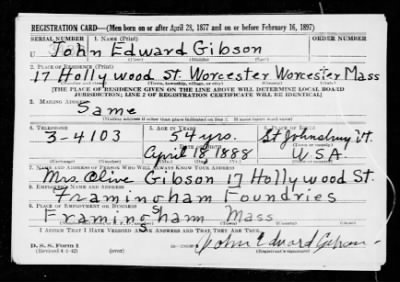 REGISTRATION CARD—(Men born on or after April 28, 1877 and on or before February 16, 1897)
SERIAL NUMBER 1. NAME (Print) ORDER NUMBER
U John Edward Gibson
2. PLACE OF RESIDENCE (Print)
17 Hollywood St. Worcester Worcester Mass
[THE PLACE OF RESIDENCE GIVEN ON THE LINE ABOVE WILL DETERMINE LOCAL BOARD
JURISDICTION; LINE 2 OF REGISTRATION CERTIFICATE WILL BE IDENTICAL]
3. MAILING ADDRESS
Same
[Mailing address if other than place indicated on line 2. If same insert word same]
4. TELEPHONE 5. AGE IN YEARS 6. PLACE OF BIRTH
3-4103 54 yrs. St Johnsbury Vt.
DATE OF BIRTH
April 18 1888 U.S.A.
7. NAME AND ADDRESS OF PERSON WHO WILL ALWAYS KNOW YOUR ADDRESS
Mrs Olive Gibson 17 Hollywood St.
8. EMPLOYER'S NAME AND ADDRESS
Framingham Foundries
9. PLACE OF EMPLOYMENT OR BUSINESS
Framingham Mass
I AFFIRM THAT I HAVE VERIFIED ABOVE ANSWERS AND THAT THEY ARE TRUE.
D. S. S. Form 1
(Revised 4-1-42)
John Edward Gibson